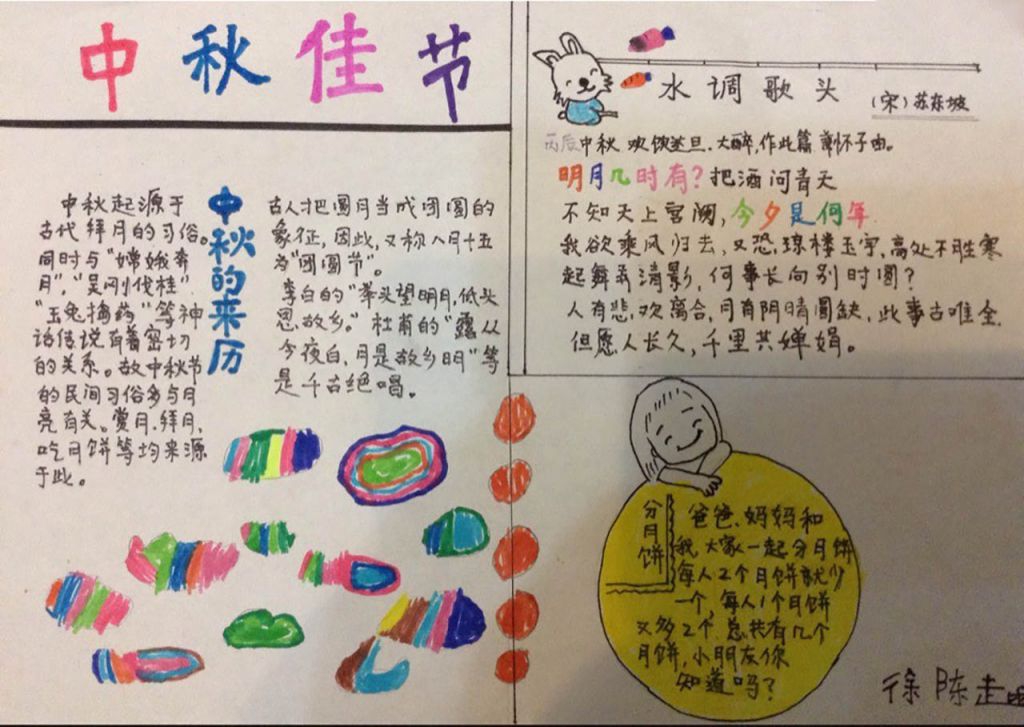 中秋佳节
中秋的来历
中秋起源于
古代拜月的习俗。
同时与"嫦娥奔
月","吴刚伐桂"
"玉兔捣药"等神
话传说有着密切
的关系。故中秋节
的民间习俗多与月
亮有关。赏月,拜月,
吃月饼等均来源
于此。
古人把圆月当成团圆的
象征,因此,又称八月十五
为"团圆节"。
李白的"举头望明月,低头
思故乡。"杜甫的"露从
今夜白,月是故乡明"等
是千古绝唱。
水调歌头
(宋)苏东坡
丙辰中秋,欢饮达旦,大醉,作此篇,兼怀子由。
明月几时有?把酒问青天
不知天上宫阙,今夕是何年
我欲乘风归去,又恐琼楼玉宇,高处不胜寒
起舞弄清影,何事长向别时圆?
人有悲,欢离合,月有阴晴圆缺,此事古难全
但愿人长久,千里共婵娟。
分月饼
爸爸、妈妈和
我,大家一起分月饼
每人2个月饼就少
一个,每人1个月饼
又多2个.总共有几个
月饼,小朋友你
知道吗?
徐陈